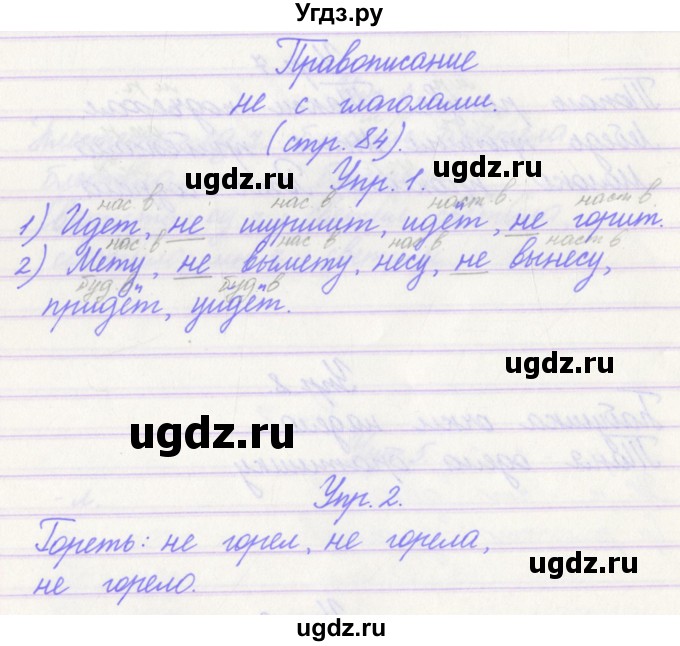 Угдз.ру
Правописание
не с глаголами.
(стр. 84).
ugdz.ru
ugdz.ru
Упр. 1.
нас. в. нас. в. наст. в. наст. в.
1) Идёт, не шуршит, идёт, не горит.
нас. в. нас. в. нас. в. наст. в
2) Мету, не вымету, несу, не вынесу,
буд. в буд. в
придёт, уйдёт.
ugdz.ru
ugdz.ru
Упр. 2.
Гореть: не горел, не горела,
не горело.
ugdz.ru
ugdz.ru